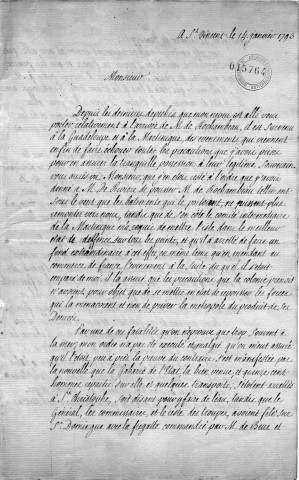 A St Vincent le 14 janvier 1793
015764
Monsieur
Depuis les dernières depeches que mon aviso est allé vous
porter relativement à l'arrivée de M. de Rochambeau, il est survenu
à la Guadeloupe et à la Martinique, des evenements qui viennent
enfin de faire echouer toutes les precautions que j'avois prises
pour en assurer la tranquille possession à leur legitime Souverain.
vous avés vu Monsieur, que j'en etois resté à l'ordre que j'avois
donné à M. De Riviere de suivre M. de Rochambeau tellement
sous le vent que les batiments qui le portoient, ne pussent plus
remonter vers nous, tandis que de son coté le comité intermediaire
de la Martinique de mettre l'isle dans le meilleur
etat de deffense sur tous les points, et qu'il a arrêté de faire un
fond extraordinaire à cet effet, en même tems qu'en mandant au
commerce de france, l'evenement à la suite du quel il s'etoit
emparé de moi, il lui annoncé que les precautions que la colonie prenoit
n'avoient pour objet que de se mettre en etat de repousser les forces
qui la menacoient et non de priver la metropole du produit de ses
Denrées.
Par une de ces fatalités qu'on n'eprouve que trop souvent à
la mer, mon ordre n'a pas été executé et malgré qu'on m'eut assuré
qu'il l'etoit, peu à près la preuve du contraire, s'est manifestée par
la nouvelle que la Gabarre de l'Etat, la bien venue, et quinze cent
hommes repartis sur elle et quelques transports, s'etoient arretés
à St Christophe, soit disant pour y faire de l'eau, tandis que le
Général, les commissaires, et le reste des troupes, avoient filé sur
St. Domingue avec la fregatte commandée par M. de Bruix et